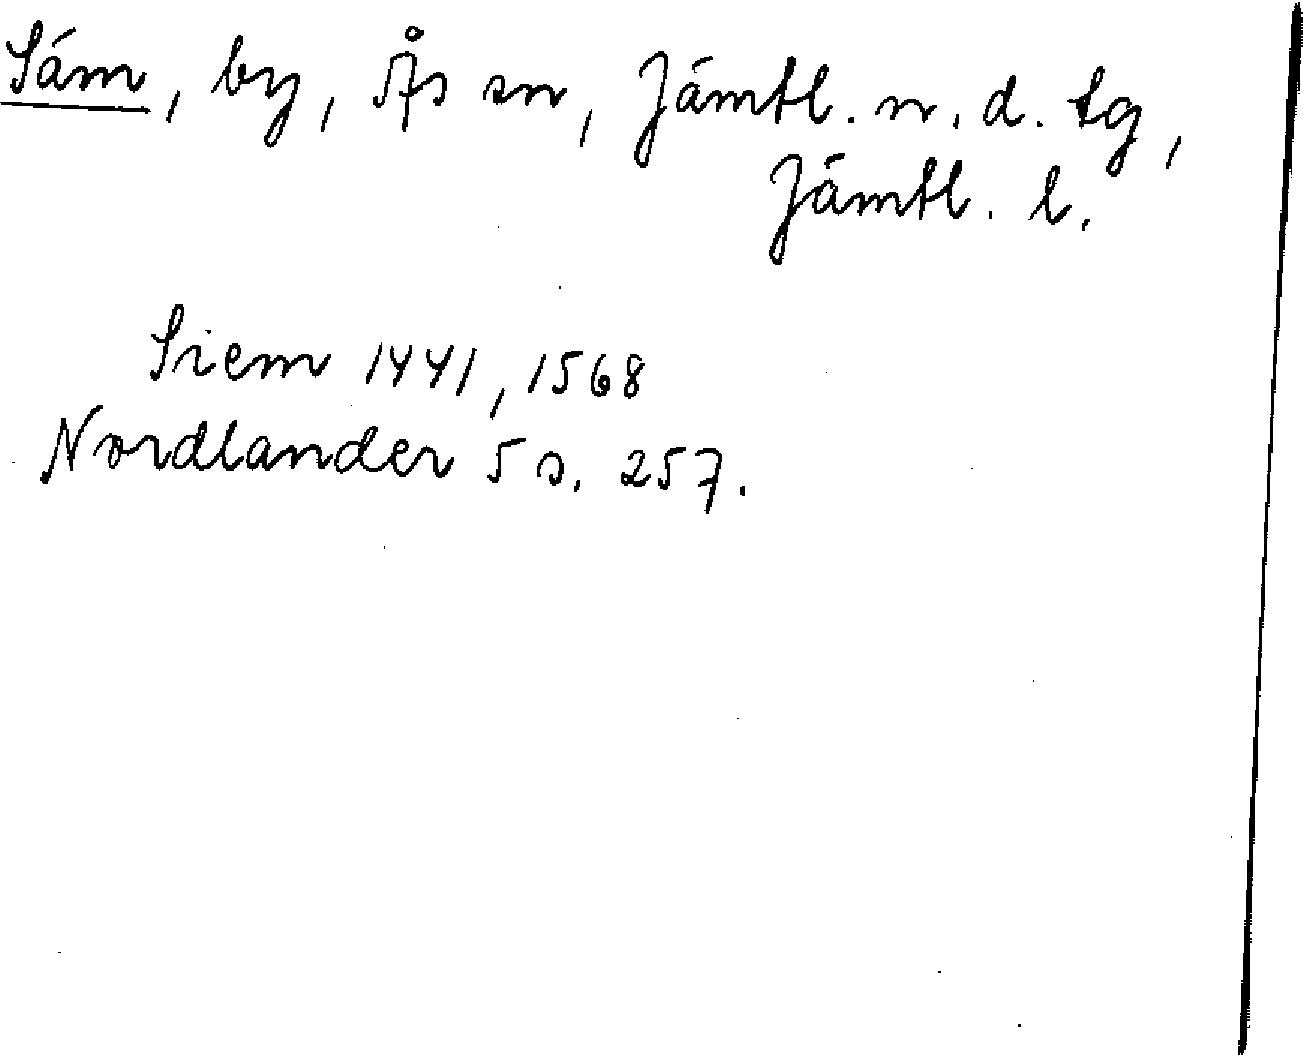 Säm, by, Ås sn, Jämtl. n. d. tg,
Jämtl. l.
Siem 1441, 1568
Nordlander 5 s. 257.